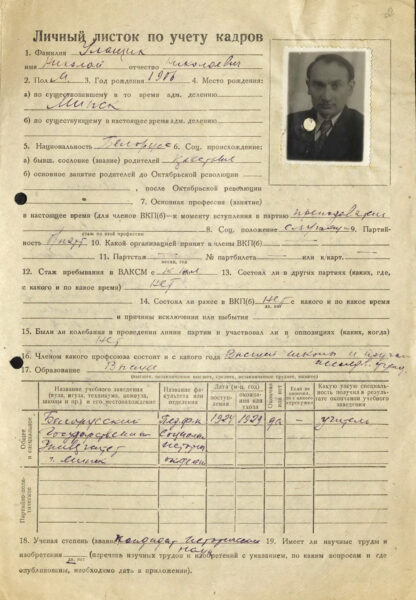 Личный листок по учету кадров
1. Фамилия Улащик
имя Николай отчество Николаевич
2. Пол М. 3. Год рождения 1906 4. Место рождения:
а) по существовавшему в то время адм. делению
Минск
б) по существующему в настоящее время адм. делению
5. Национальность Белорус 6. Соц. происхождение:
а) бывш. сословие (звание) родителей
б) основное занятие родителей до Октябрьской революции
, после Октябрьской революции
7. Основная профессия (занятие)
в настоящее время (для членов ВКП(б)—к моменту вступления в партию
стаж по этой профессии
8. Соц. положение служащий 9. Партий-
ность 10. Какой организацией принят в члены ВКП(б)
11. Партстаж № партбилета или к/карт.
месяц, год
12. Стаж пребывания в ВЛКСМ с 13. Состоял ли в других партиях (каких, где,
с какого и по какое время) нет
14. Состоял ли ранее в ВКП(б) нет с какого и по какое время
да, нет
и причины исключения или выбытия
15. Были ли колебания в проведении линии партии и участвовал ли в оппозициях (каких, когда)
нет
16. Членом какого профсоюза состоит и с какого года Высшей школы и
17. Образование Высшее
Название учебного заведения (вуза, втуза, техникума, комвуза, школы и пр.) и его местонахождение
Название факультета или отделения
Дата (м-ц, год)
поступления
окончания или ухода
Окончил да или нет
Если не окончил, то с какого курса ушел
Какую узкую специальность получил в результате окончания учебного заведения
Общее и специальное
Белорусский Педфак 1924 1929 да — учитель
Государственный
Университет
г. Минск
Партийно-политическое
18. Ученая степень (звание) кандидат исторических
наук 19. Имеет ли научные труды и
изобретения да, нет (перечень научных трудов и изобретений с указанием, по каким вопросам и где
опубликованы, необходимо дать в приложении).